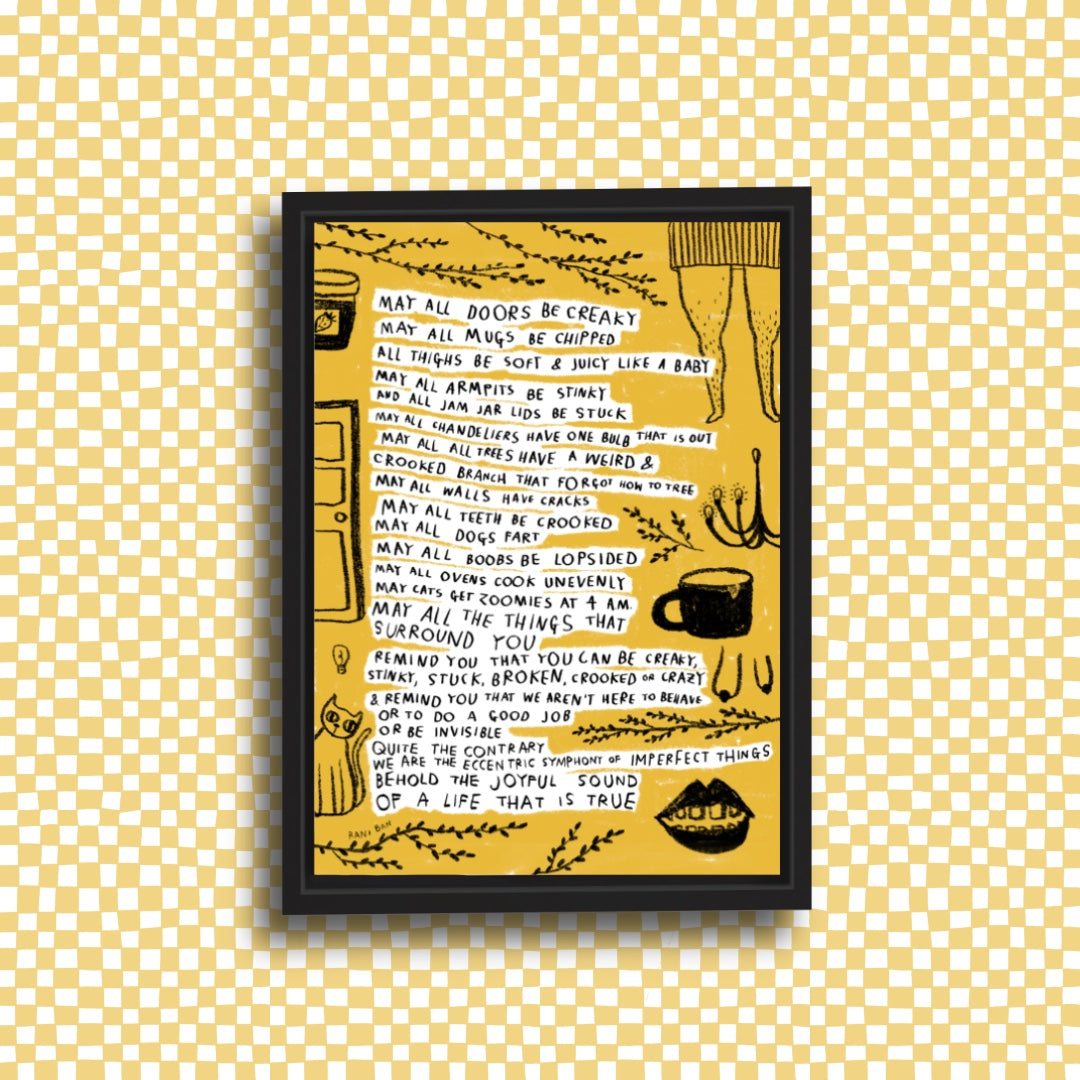 MAY ALL DOORS BE CREAKY
MAY ALL MUGS BE CHIPPED
ALL THIGHS BE SOFT & JUICY LIKE A BABY
MAY ALL ARMPITS BE STINKY
AND ALL JAM JAR LIDS BE STUCK
MAY ALL CHANDELIERS HAVE ONE BULB THAT IS OUT
MAY ALL ALL TREES HAVE A WEIRD &
CROOKED BRANCH THAT FORGOT HOW TO TREE
MAY ALL WALLS HAVE CRACKS
MAY ALL TEETH BE CROOKED
MAY ALL DOGS FART
MAY ALL BOOBS BE LOPSIDED
MAY ALL OVENS COOK UNEVENLY
MAY CATS GET ZOOMIES AT 4 AM.
MAY ALL THE THINGS THAT
SURROUND YOU
REMIND YOU THAT YOU CAN BE CREAKY,
STINKY, STUCK, BROKEN, CROOKED OR CRAZY
& REMIND YOU THAT WE AREN'T HERE TO BEHAVE
OR TO DO A GOOD JOB
OR BE INVISIBLE
QUITE THE CONTRARY
WE ARE THE ECCENTRIC SYMPHONY OF IMPERFECT THINGS
BEHOLD THE JOYFUL SOUND
OF A LIFE THAT IS TRUE
RANI BAN